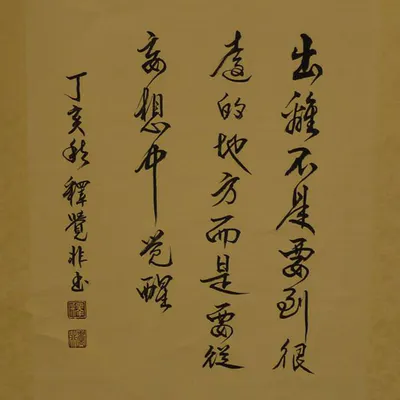 出離不是要到很
遠的地方而是要從
妄想中觉醒
丁亥秋釋覺非书